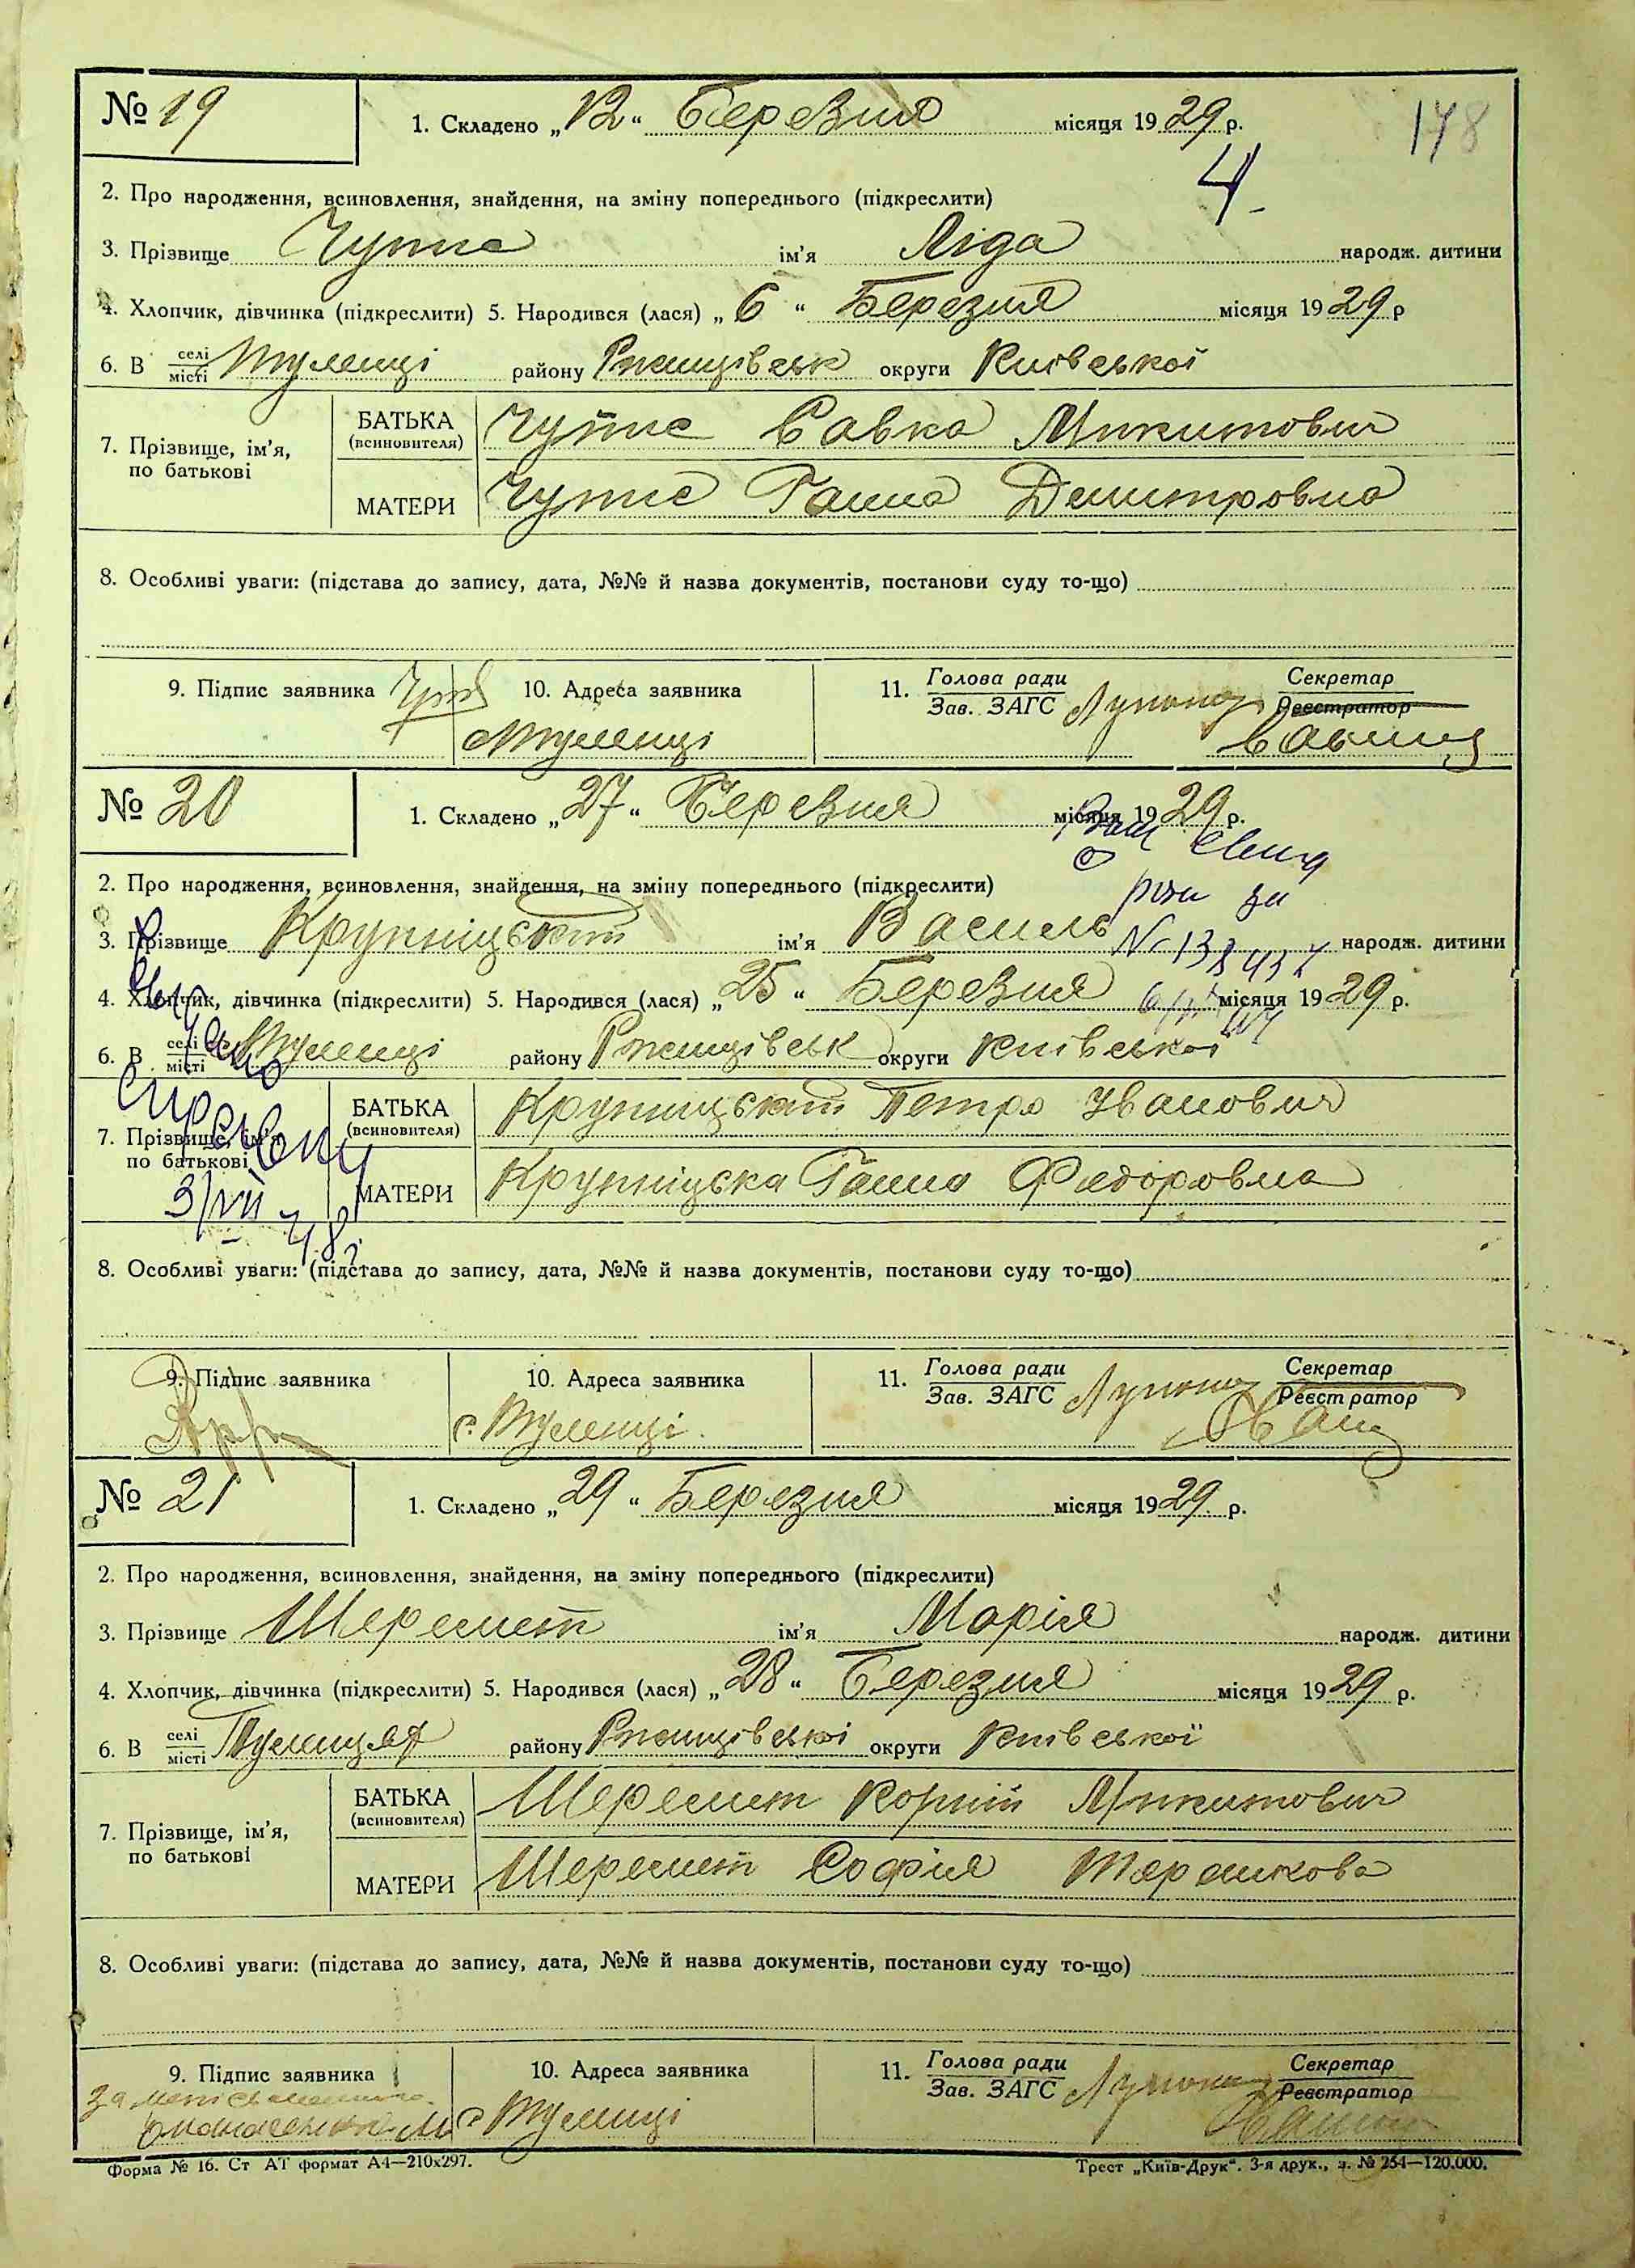 № 19
1. Складено „12“ Березня місяця 1929 р.
178
4
2. Про народження, всиновлення, знайдення, на зміну попереднього (підкреслити)
3. Прізвище Чупис ім'я Ліда народж. дитини
4. Хлопчик, дівчинка (підкреслити) 5. Народився (лася) „6“ Березня місяця 1929 р
6. В селі місті Тулинці району Ржищівськ округи Київської
7. Прізвище, ім'я, по батькові
БАТЬКА (всиновителя) Чупис Савка Микитович
МАТЕРИ Чупис Ганна Демитровна
8. Особливі уваги: (підстава до запису, дата, №№ й назва документів, постанови суду то-що)
9. Підпис заявника 10. Адреса заявника 11. Голова ради Зав. ЗАГС Секретар Реєстратор
Тулинці
№ 20
1. Складено „27“ Березня місяця 1929 р.
2. Про народження, всиновлення, знайдення, на зміну попереднього (підкреслити)
3. Прізвище Крупніцький ім'я Василь народж. дитини
4. Хлопчик, дівчинка (підкреслити) 5. Народився (лася) „25“ Березня місяця 1929 р.
6. В селі місті Тулинці району Ржищівськ округи Київської
7. Прізвище, ім'я, по батькові
БАТЬКА (всиновителя) Крупницький Петро Іванович
МАТЕРИ Крупніцька Ганна Федоровна
3/VII 48г
8. Особливі уваги: (підстава до запису, дата, №№ й назва документів, постанови суду то-що)
9. Підпис заявника 10. Адреса заявника 11. Голова ради Зав. ЗАГС Секретар Реєстратор
с. Тулинці
№ 21
1. Складено „29“ Березня місяця 1929 р.
2. Про народження, всиновлення, знайдення, на зміну попереднього (підкреслити)
3. Прізвище Шеремет ім'я Марія народж. дитини
4. Хлопчик, дівчинка (підкреслити) 5. Народився (лася) „28“ Березня місяця 1929 р.
6. В селі місті Тулинцях району Ржищівської округи Київської
7. Прізвище, ім'я, по батькові
БАТЬКА (всиновителя) Шеремет Корній Микитович
МАТЕРИ Шеремет Софія
8. Особливі уваги: (підстава до запису, дата, №№ й назва документів, постанови суду то-що)
9. Підпис заявника 10. Адреса заявника 11. Голова ради Зав. ЗАГС Секретар Реєстратор
с Тулинці
Форма № 16. Ст АТ формат А4—210х297. Трест „Київ-Друк“. 3-я друк., з. № 254—120.000.